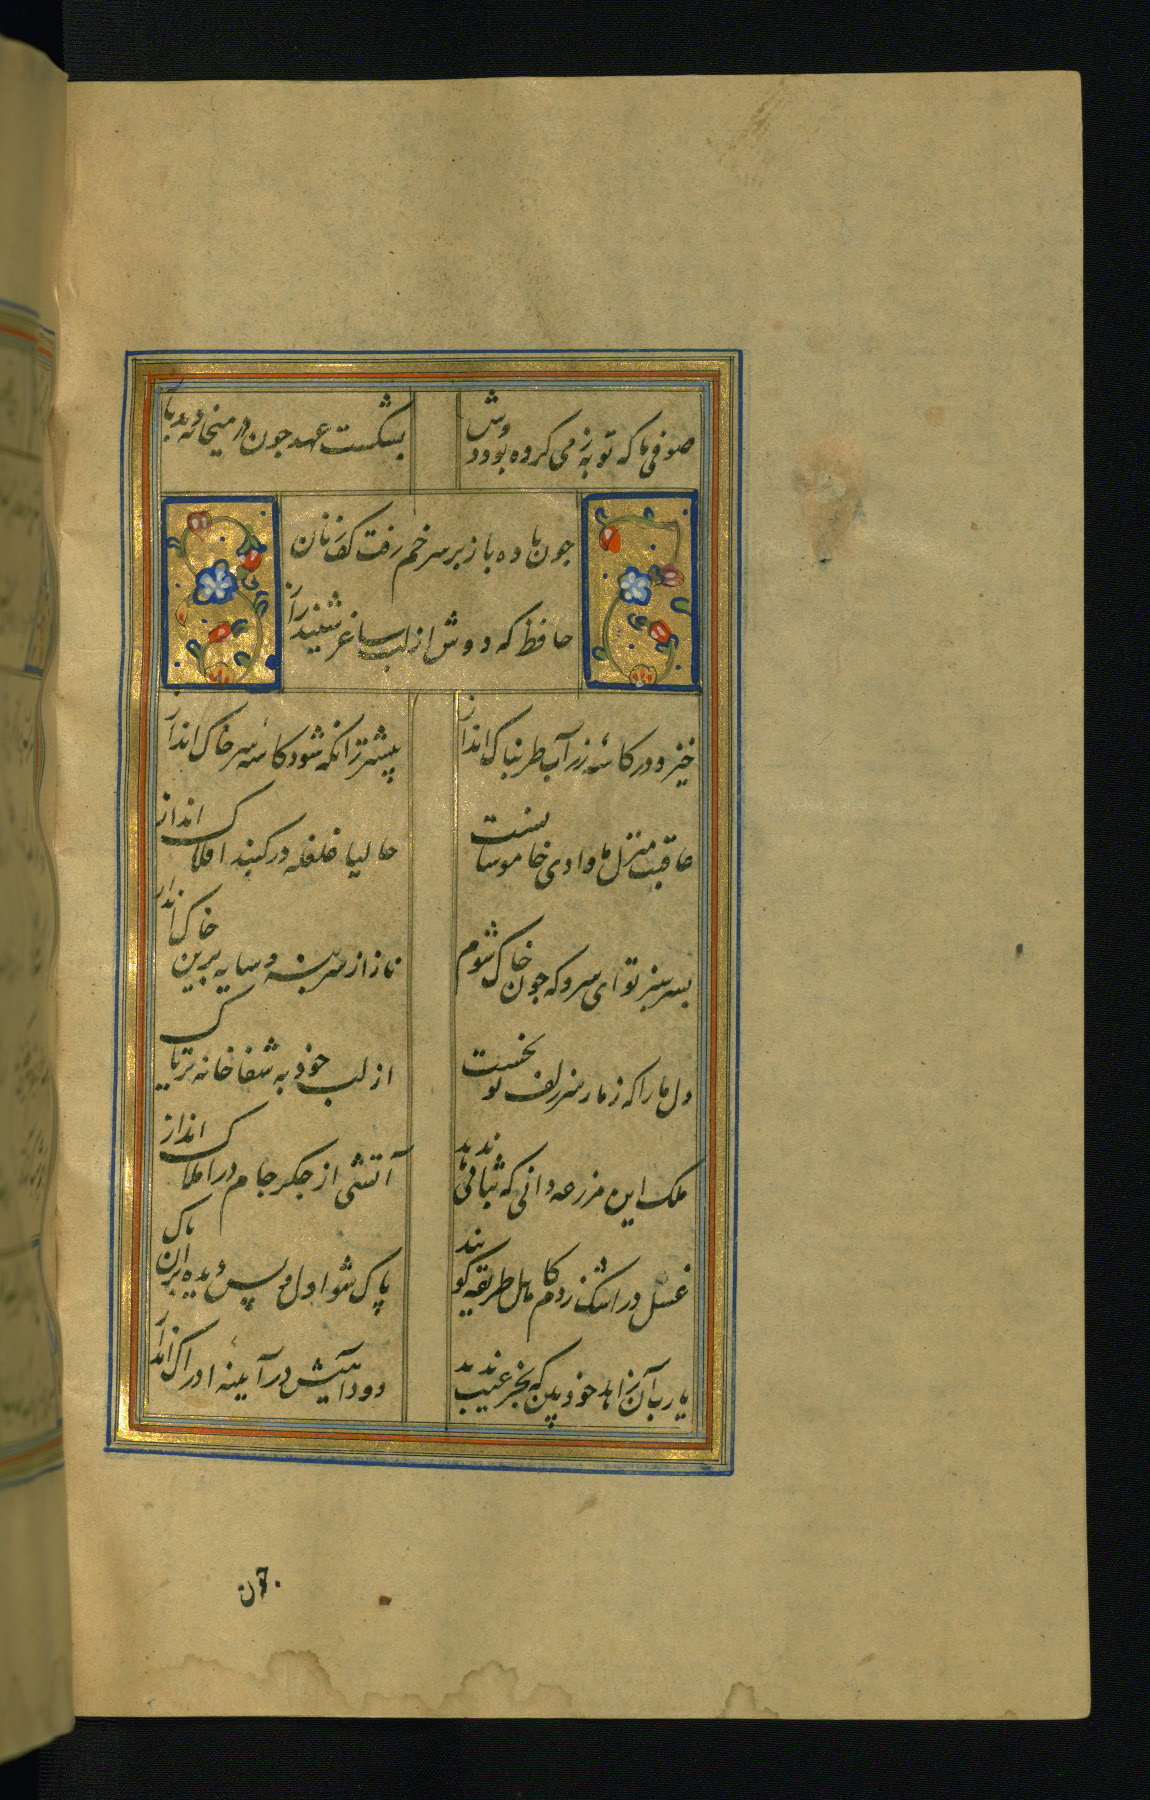 صوفی ما که توبه زمی کرده بود دوش
بشکست عهد چون در میخانه دید باز
چون باده باز بر سر خم رفت کف زنان
حافظ که دوش از لب ساغر شنید راز
خیز و در کاسهٔ زر آب طربناک انداز
پیشتر زانکه شود کاسهٔ سر خاک انداز
عاقبت منزل ما وادی خاموشانست
حالیا غلغله در کنبد افلاک انداز
بسر سبز تو ای سرو که چون خاک شوم
ناز از سر بنه و سایه برین خاک انداز
دل ما را که ز مار سر زلف تو بخست
از لب خود به شفاخانه تریاک
ملک این مزرعه دانی که ثباتی ندهد
آتشی از جکر جام در املاک انداز
غسل در اشک زدم کاهل طریقت کویند
پاک شو اول و پس دیده بران پاک انداز
یا رب آن زاهد خودبین که بجز عیب ندید
دود آهیش در آیینهٔ ادراک انداز
چون